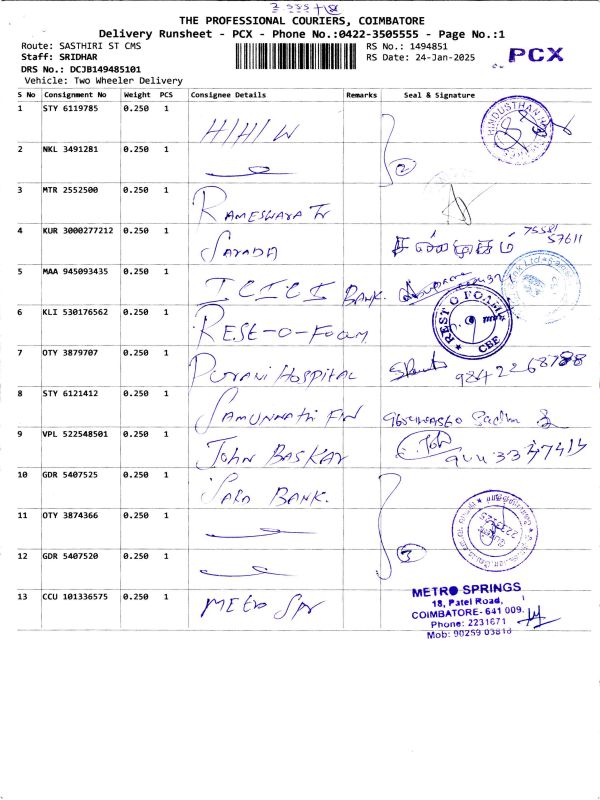 THE PROFESSIONAL COURIERS, COIMBATORE
Delivery Runsheet - PCX - Phone No.:0422-3505555 - Page No.:1
Route: SASTHIRI ST CMS RS No.: 1494851
Staff: SRIDHAR RS Date: 24-Jan-2025 PCX
DRS No.: DCJB149485101
Vehicle: Two Wheeler Delivery
S No Consignment No Weight PCS Consignee Details Remarks Seal & Signature
1 STY 6119785 0.250 1 HINDUSTHAN
2 NKL 3491281 0.250 1 2
3 MTR 2552500 0.250 1 RAMESWARA Tr
4 KUR 3000277212 0.250 1 SARADA 75581
57611
5 MAA 945093435 0.250 1 ICICI BANK.
6 KLI 530176562 0.250 1 REST-O-FOAM REST O FOAM CBE
7 OTY 3879707 0.250 1 PURANI HOSPITAL 9842268788
8 STY 6121412 0.250 1 SAMUNNATHI FIN
9 VPL 522548501 0.250 1 JOHN BASKAR John
10 GDR 5407525 0.250 1 BANK.
11 OTY 3874366 0.250 1
12 GDR 5407520 0.250 1 3
13 CCU 101336575 0.250 1 METRO SPR
METRO SPRINGS
18, Patel Road,
COIMBATORE- 641 009.
Phone: 2231671
Mob: 90259 03818